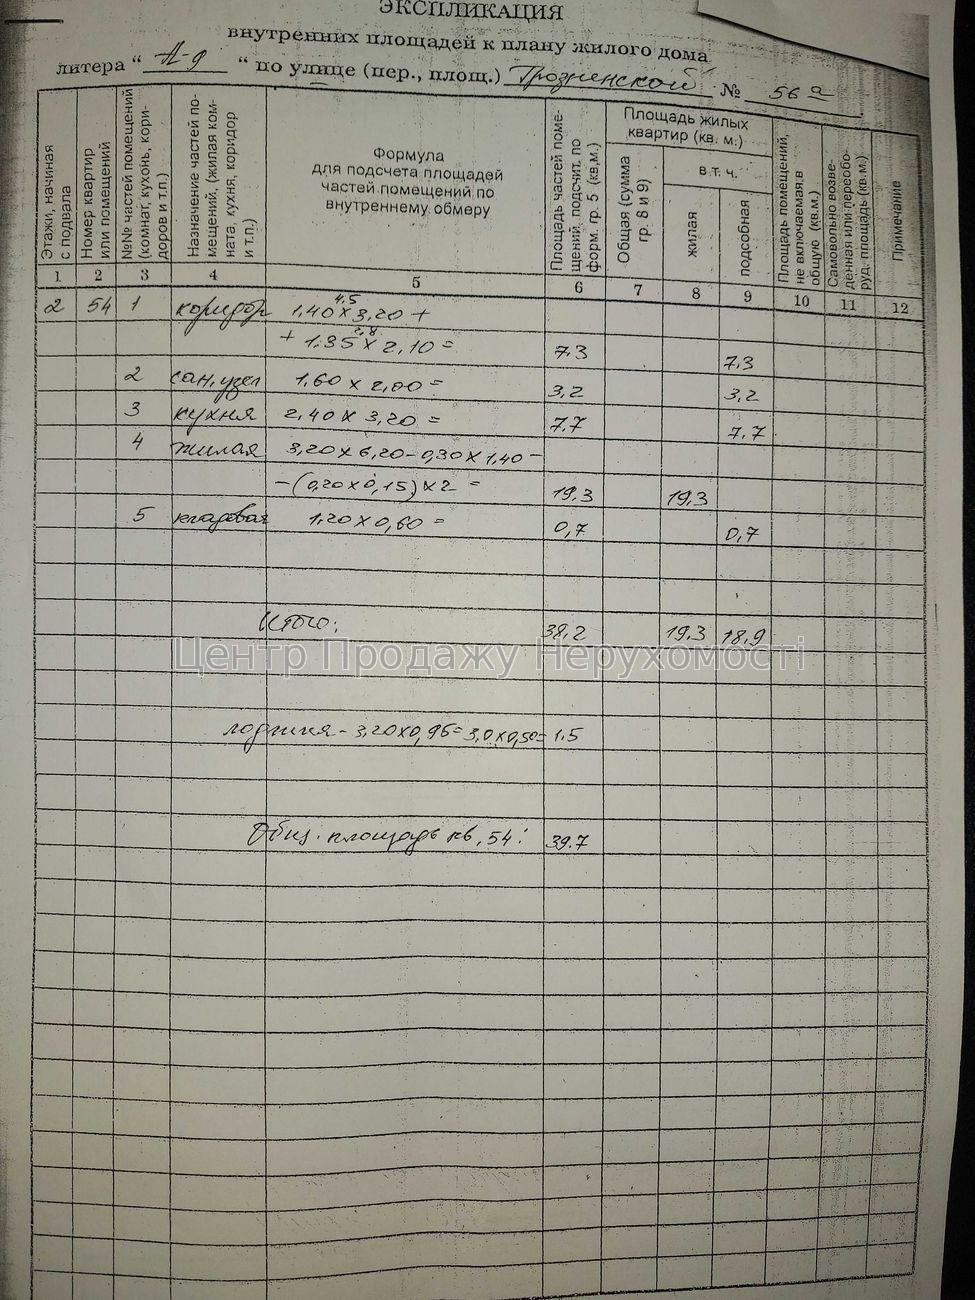 ЭКСПЛИКАЦИЯ
внутренних площадей к плану жилого дома
литера “ А-9 “ по улице (пер., площ.) Грозненской № 56 а
Этажи, начиная с подвала
Номер квартир или помещений
№№ частей помещений (комнат, кухонь, коридоров и т.п.)
Назначение частей помещений, (жилая комната, кухня, коридор и т.п.)
Формула
для подсчета площадей
частей помещений по
внутреннему обмеру
Площадь частей помещений, подсчит. по форм. гр. 5 (кв.м.)
Площадь жилых
квартир (кв. м.)
Общая (сумма гр. 8 и 9)
в т. ч.
жилая
подсобная
Площадь помещений, не включаемая в общую (кв.м.)
Самовольно возведенная или переоборуд. площадь (кв.м.)
Примечание
1 2 3 4 5 6 7 8 9 10 11 12
2 54 1 коридор 1,40 х 3,20 +
4,5
+ 1,35 х 2,10 = 7,3 7,3
2,8
2 сан.узел 1,60 х 2,00 = 3,2 3,2
3 кухня 2,40 х 3,20 = 7,7 7,7
4 жилая 3,20 х 6,20 - 0,30 х 1,40 -
- (0,20 х 0,15) х 2 = 19,3 19,3
5 кладовая 1,20 х 0,60 = 0,7 0,7
Итого: 38,2 19,3 18,9
Центр Продажу Нерухомості
лоджия - 3,20 х 0,96 = 3,0 х 0,50 = 1,5
Общ. площадь кв. 54: 39.7